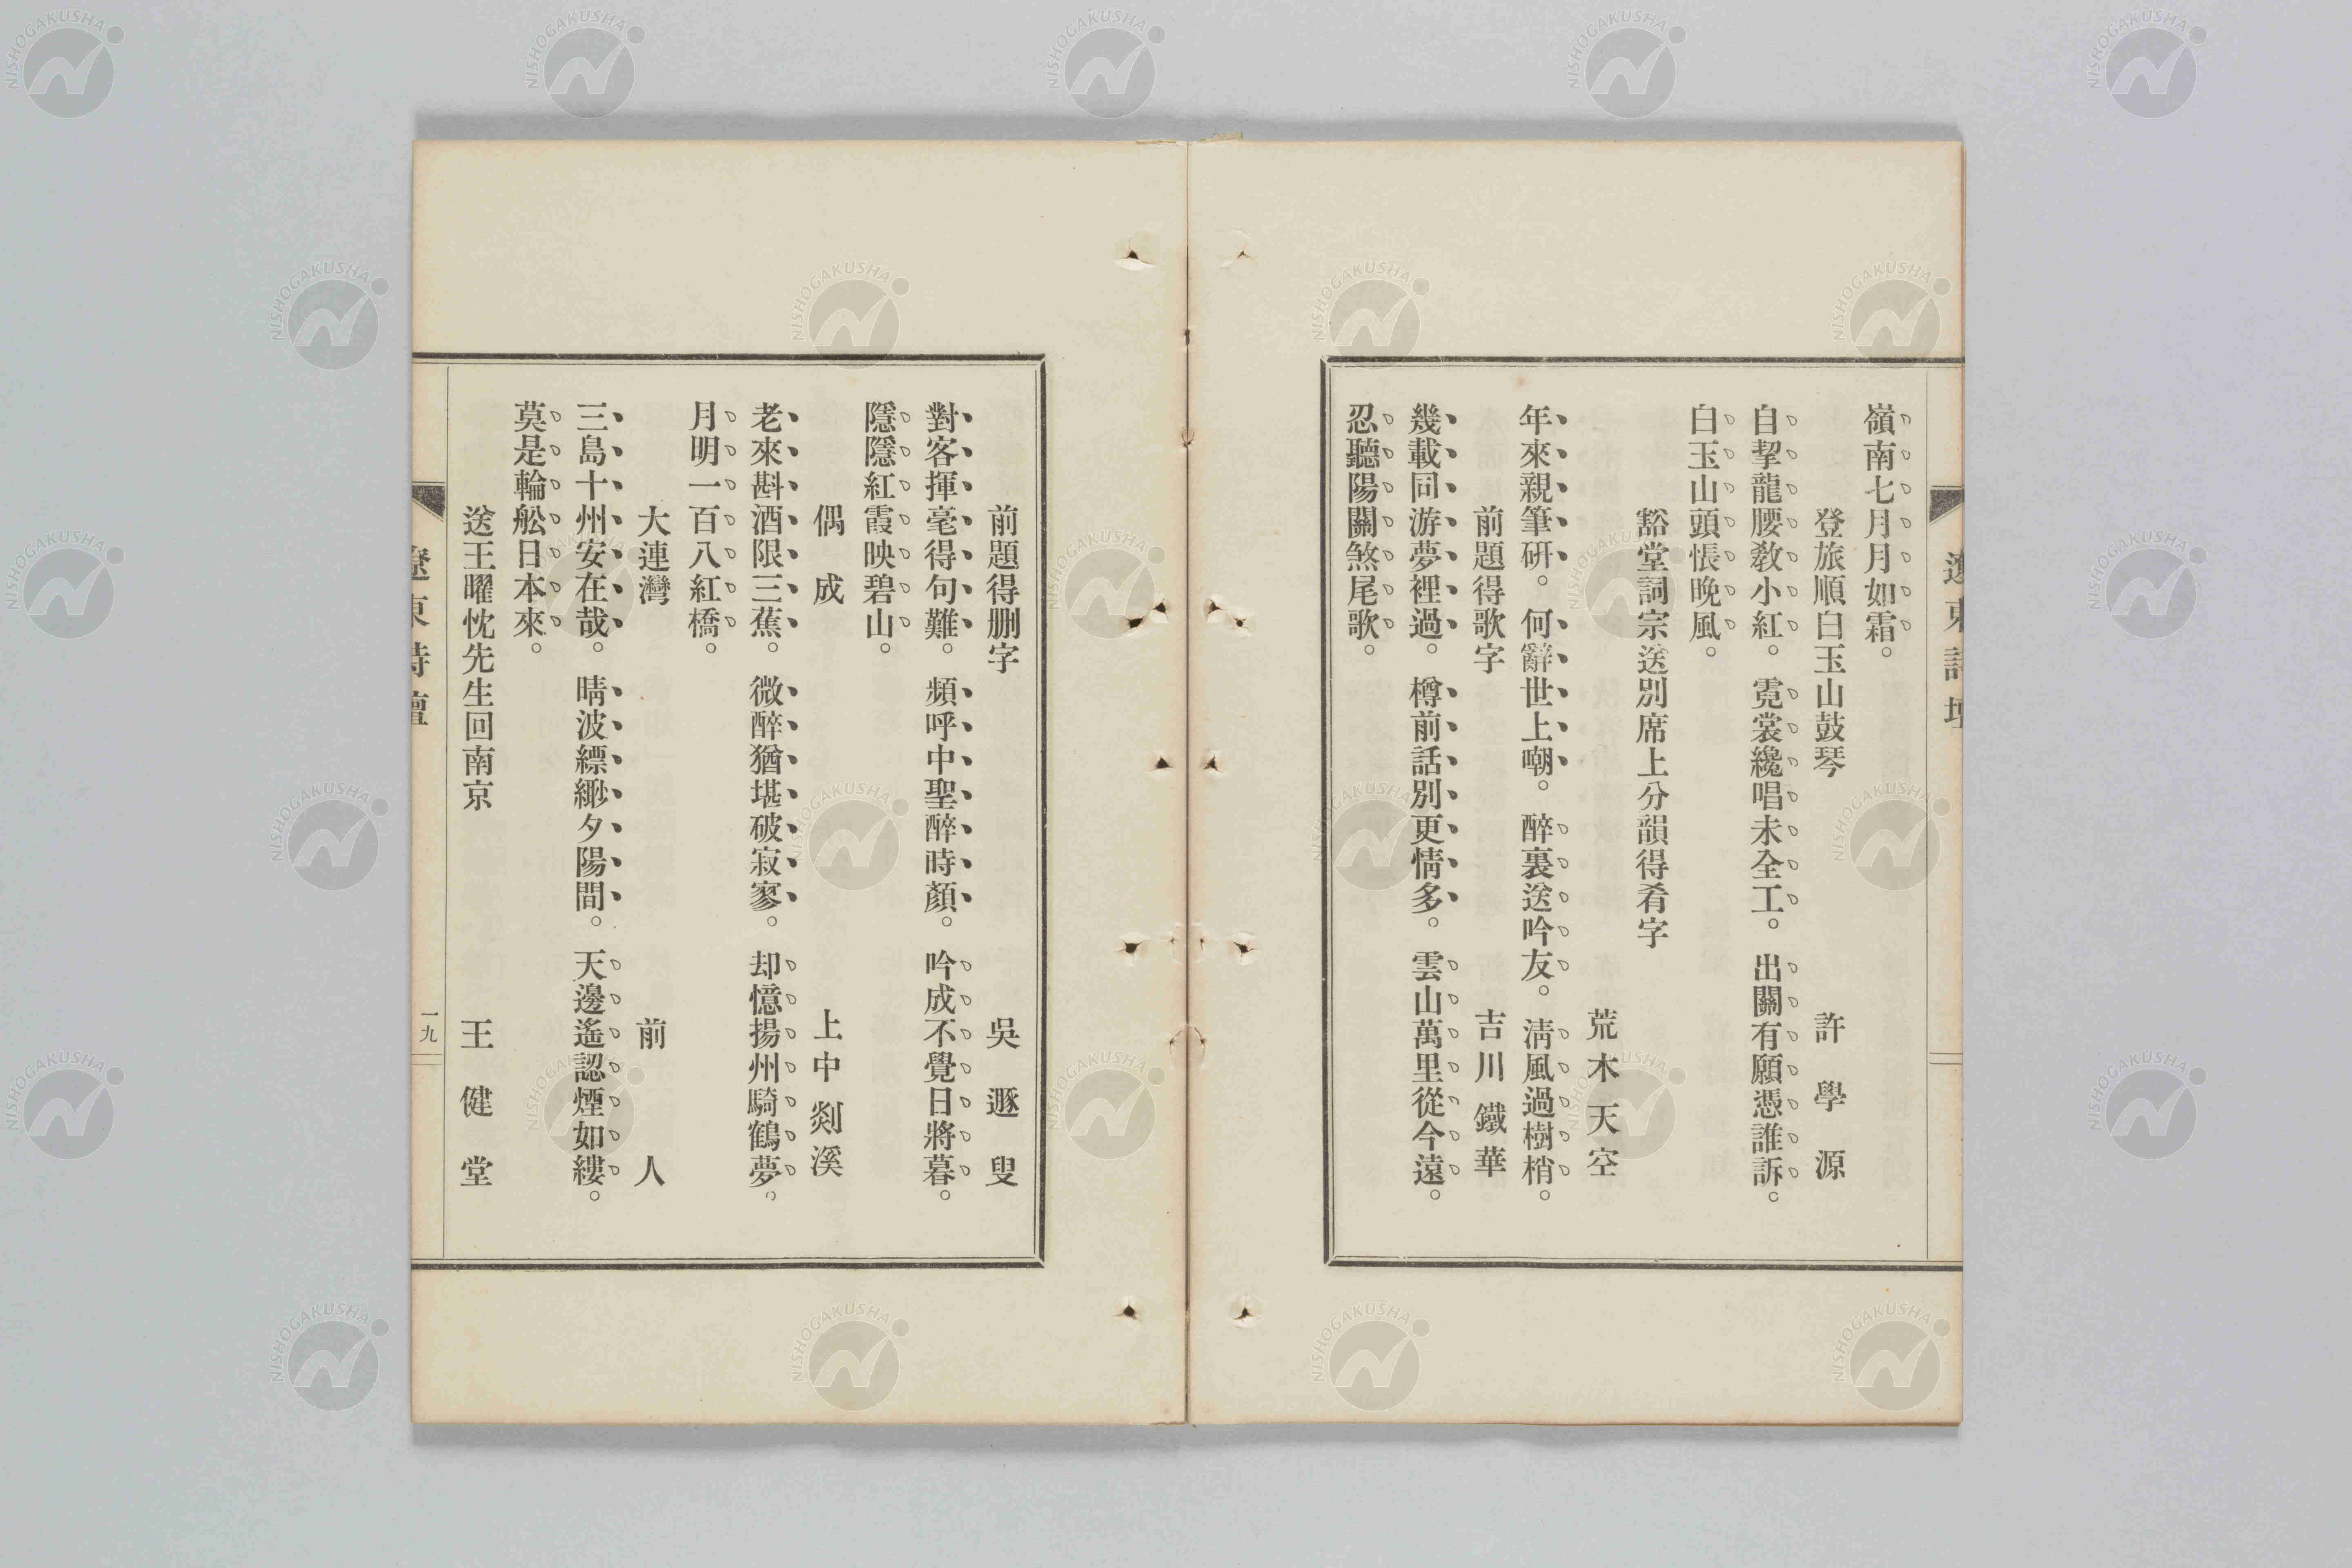 遼東詩壇
嶺南七月月如霜。
登旅順白玉山鼓琴　許學源
自挈龍腰敎小紅。霓裳纔唱未全工。出關有願憑誰訴。
白玉山頭悵晚風。
豁堂詞宗送別席上分韻得肴字
荒木天空
年來親筆研。何辭世上嘲。醉裏送吟友。淸風過樹梢。
前題得歌字　吉川鐵華
幾載同游夢裡過。樽前話別更情多。雲山萬里從今遠。
忍聽陽關煞尾歌。
前題得删字　吳遯叟
對客揮毫得句難。頻呼中聖醉時顏。吟成不覺日將暮。
隱隱紅霞映碧山。
偶成　上中剡溪
老來斟酒限三蕉。微醉猶堪破寂寥。却憶揚州騎鶴夢。
月明一百八紅橋。
大連灣　前人
三島十州安在哉。晴波縹緲夕陽間。天邊遙認煙如縷。
莫是輪舩日本來。
送王曜忱先生回南京　王健堂
遼東詩壇
一九
NISHOGAKUSHA